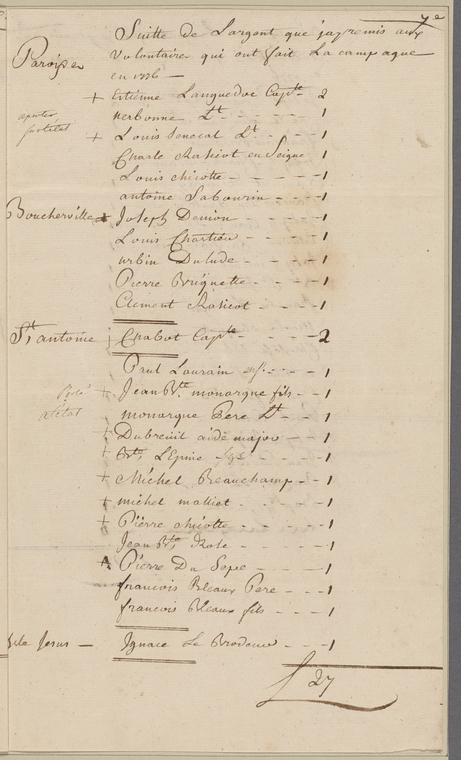 7e
Suitte de Largent que j'ay remis aux
Volontaire qui ont fait La campagne
en 1776 —
Paroisse
+ Etienne Languedoc Capte - 2
ajouter
sur l'état
Nerbonne Lt - - - - - 1
+ Louis Senecal Lt - - - 1
Charle Rasicot enSeigne 1
Louis chicotte - - - - - 1
antoine Sabourin - - - - 1
Boucherville + Joseph Denion - - - - 1
Louis Chartier - - - - 1
urbin Dulude - - - - 1
Pierre Briquette - - - - 1
Clement Rasicot - - - - 1
St antoine Chabot Capte - - - - 2
Paul Lourain - - - 1
Porté
a l'état
+ Jean Bte monarque fils - - 1
monarque Pere Lt - - 1
+ Dubreuil aide major - - 1
+ Bte L'Epine - - - 1
+ Michel Beauchamp - - 1
+ michel malliet - - - - 1
+ Piérre chicotte - - - - 1
Jean Bte Role - - - - 1
Pierre Du Pepe - - - - 1
francois Bleaux Pere - - - 1
francois Bleaux fils - - - 1
isle Jesus — Ignace Le Brodeur - - - 1
27